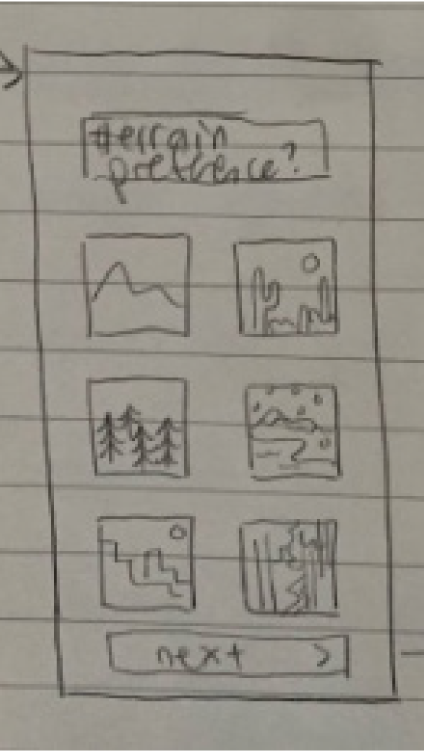 terrain
preference?
next >